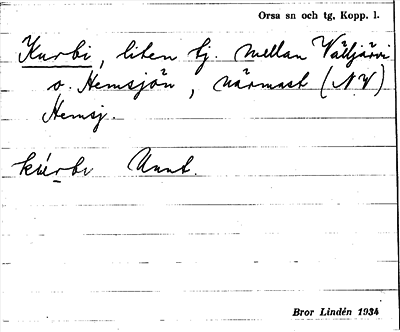 Orsa sn och tg, Kopp. l.
Kurbi, liten tj. mellan Välljärvi
o. Hemsjön, närmast (NV)
Hemsj.
kúrbi
Bror Lindén 1934